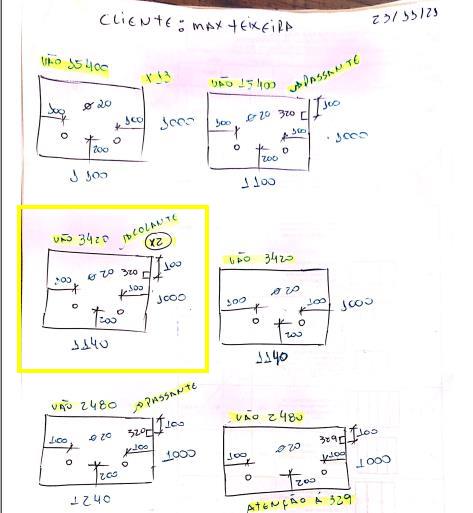 CLIENTE: MAX TEIXEIRA
23/11/21
VÃO 15400
X13
100
Ø 20
100
200
1000
1100
VÃO 15400
PASSANTE
100
Ø 20
320
100
100
200
1000
1100
VÃO 3420
X2
100
Ø 20
320
100
100
200
1000
1140
VÃO 3420
100
Ø 20
100
200
1000
1140
VÃO 2480
PASSANTE
100
Ø 20
320
100
100
200
1000
1240
VÃO 2480
100
Ø 20
329
100
100
200
1000
ATENÇÃO Á 329